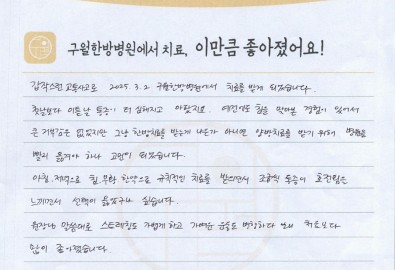 구월한방병원에서 치료, 이만큼 좋아졌어요!
갑작스런 교통사고로 2025. 3. 2 구월한방병원에서 치료를 받게 되었습니다.
첫날보다 이튿날 통증이 더 심해지고 아팠지요. 예전에도 침을 맞아본 경험이 있어서
큰 거부감은 없었지만 그냥 한방치료를 받는게 나은가 아니면 양방치료를 받기 위해 병원을
빨리 옮겨야 하나 고민이 되었습니다.
아침·저녁으로 침, 부항, 한약으로 규칙적인 치료를 받으면서 조금씩 통증이 호전됨은
느끼면서 선택이 옳았구나 싶습니다.
원장님 말씀대로 스트레칭도 가볍게 하고 가벼운 운동도 병행하다 보니 처음보다
많이 좋아졌습니다.